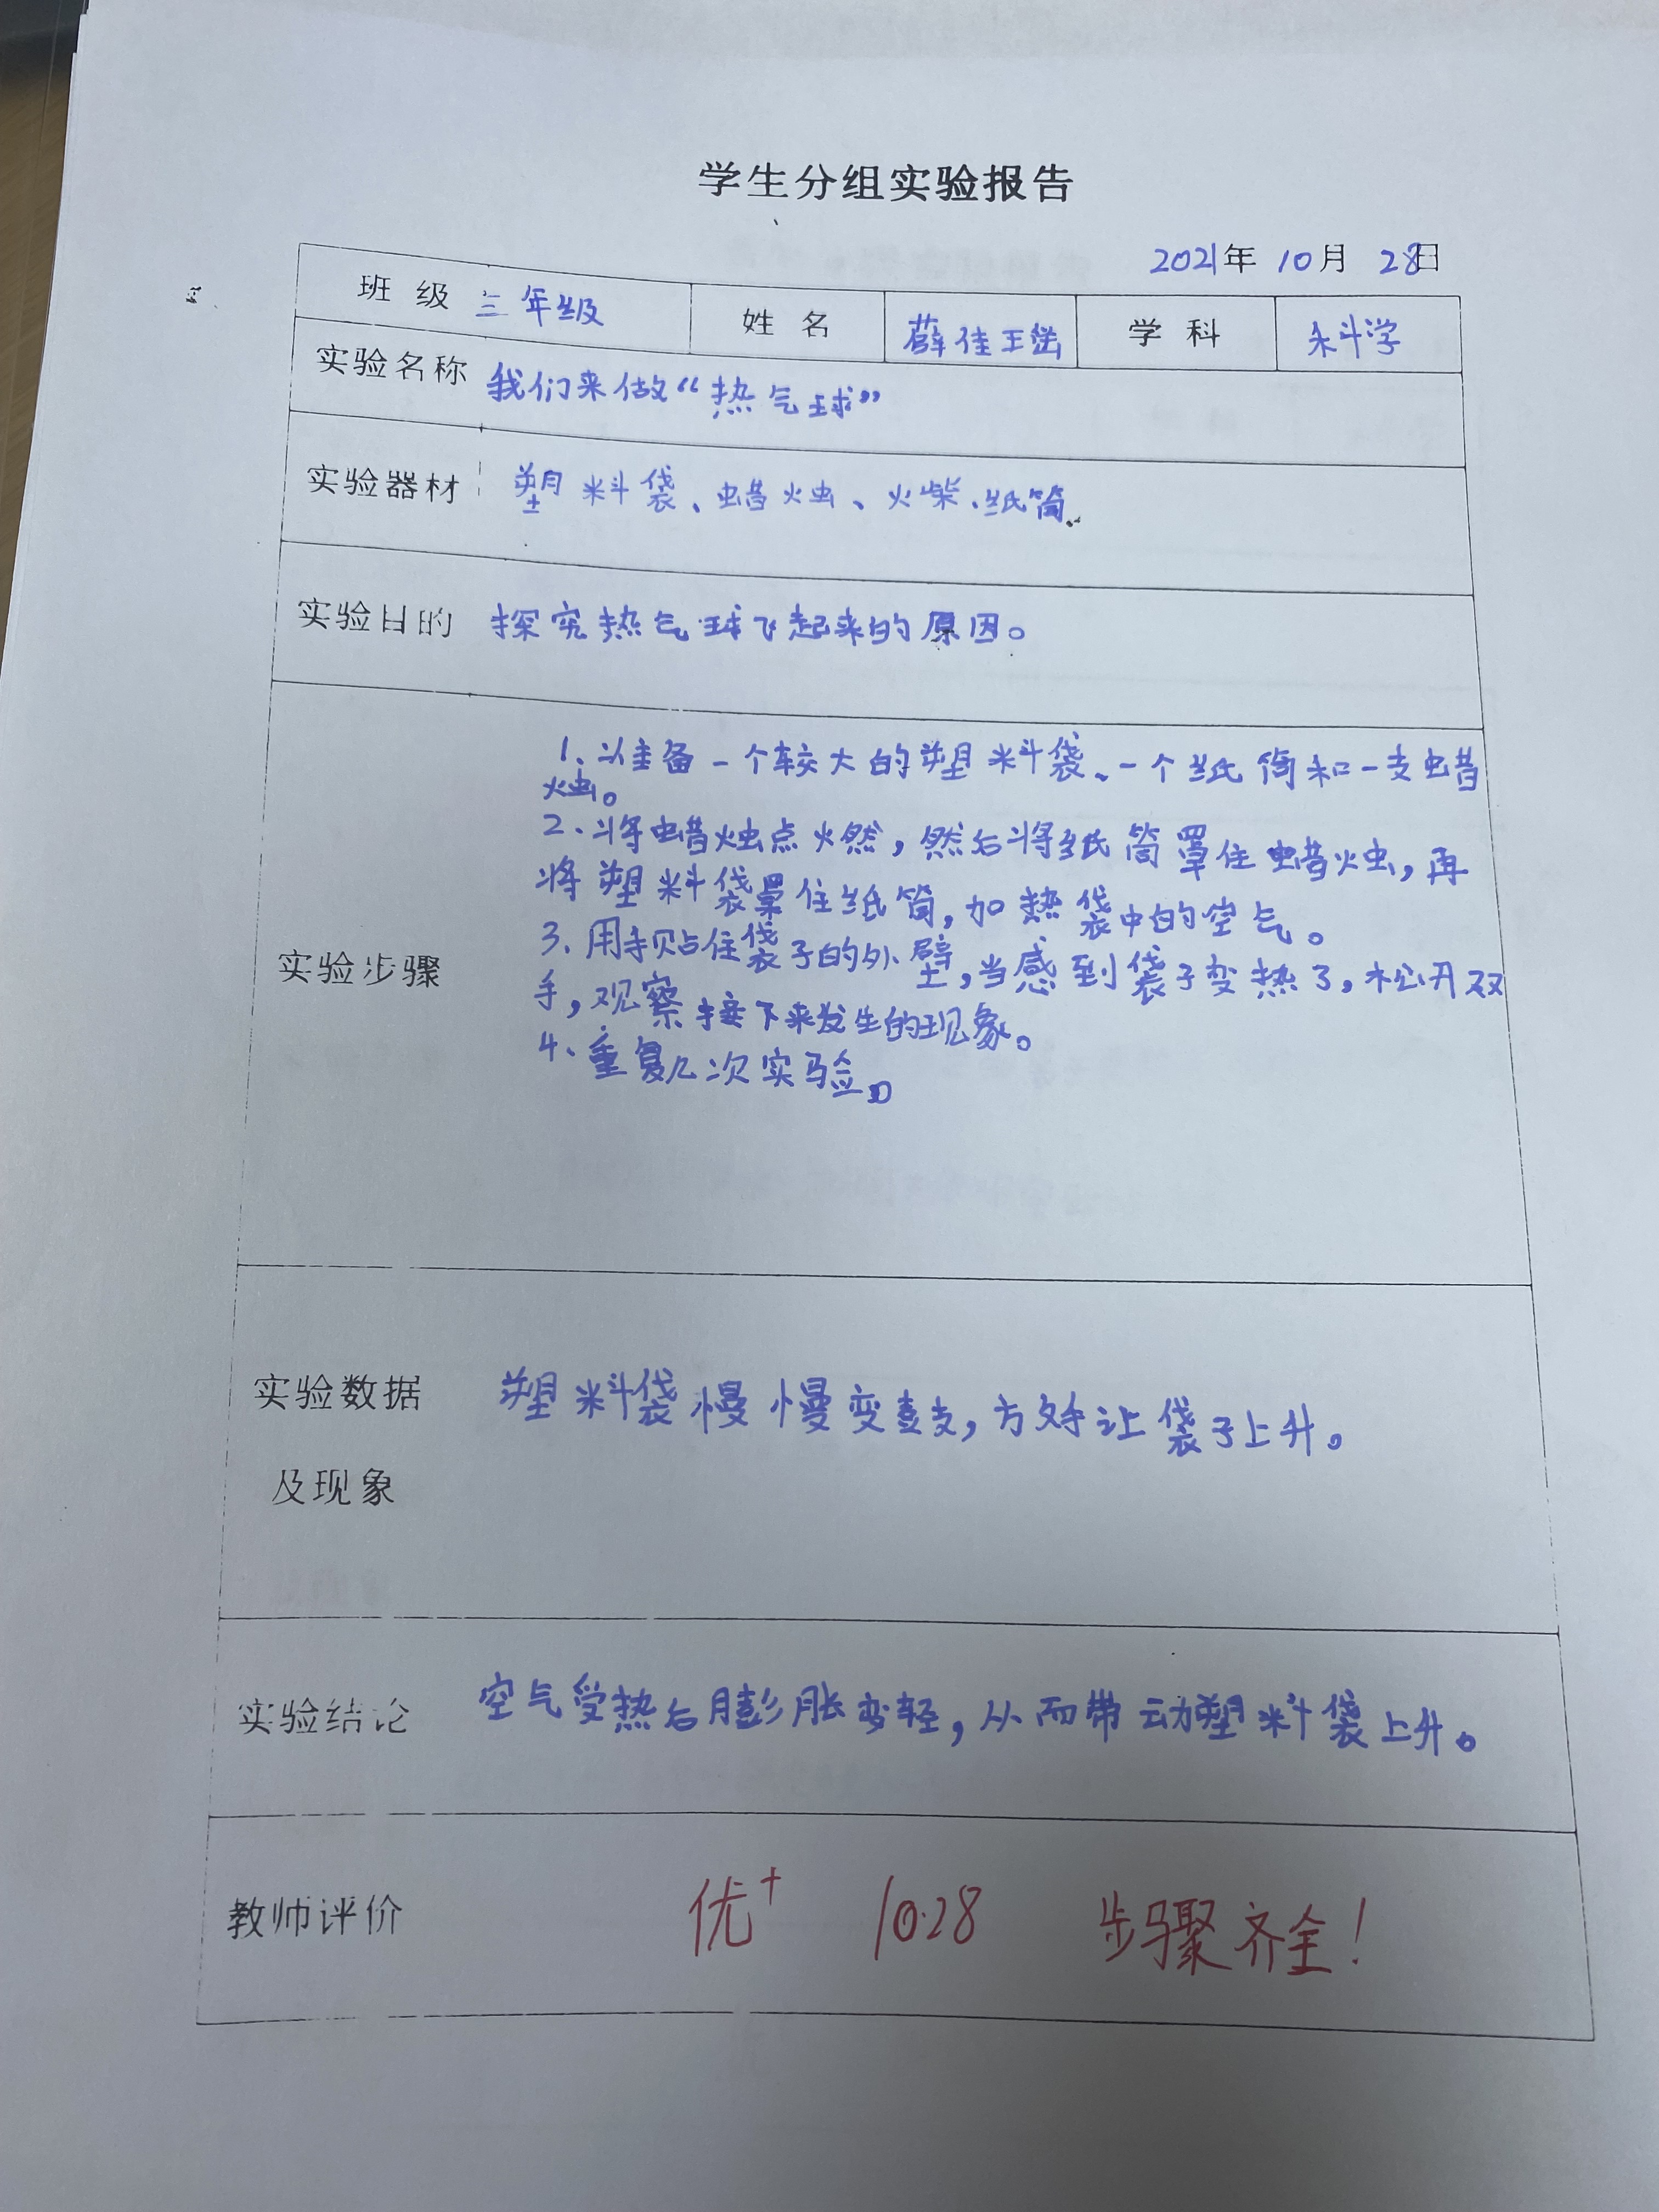 学生分组实验报告
2021年 10月 28日
班 级 三年级 姓 名 薛佳瑶 学 科 科学
实验名称 我们来做“热气球”
实验器材 塑料袋、蜡烛、火柴、纸筒。
实验目的 探究热气球飞起来的原因。
实验步骤
1、准备一个较大的塑料袋、一个纸筒和一支蜡
烛。
2、将蜡烛点燃,然后将纸筒罩住蜡烛,再
将塑料袋罩住纸筒,加热袋中的空气。
3、用手贴住袋子的外壁,当感到袋子变热了,松开双
手,观察接下来发生的现象。
4、重复几次实验。
实验数据
及现象
塑料袋慢慢变鼓,方好让袋子上升。
实验结论 空气受热后膨胀变轻,从而带动塑料袋上升。
教师评价 优+ 10.28 步骤齐全!